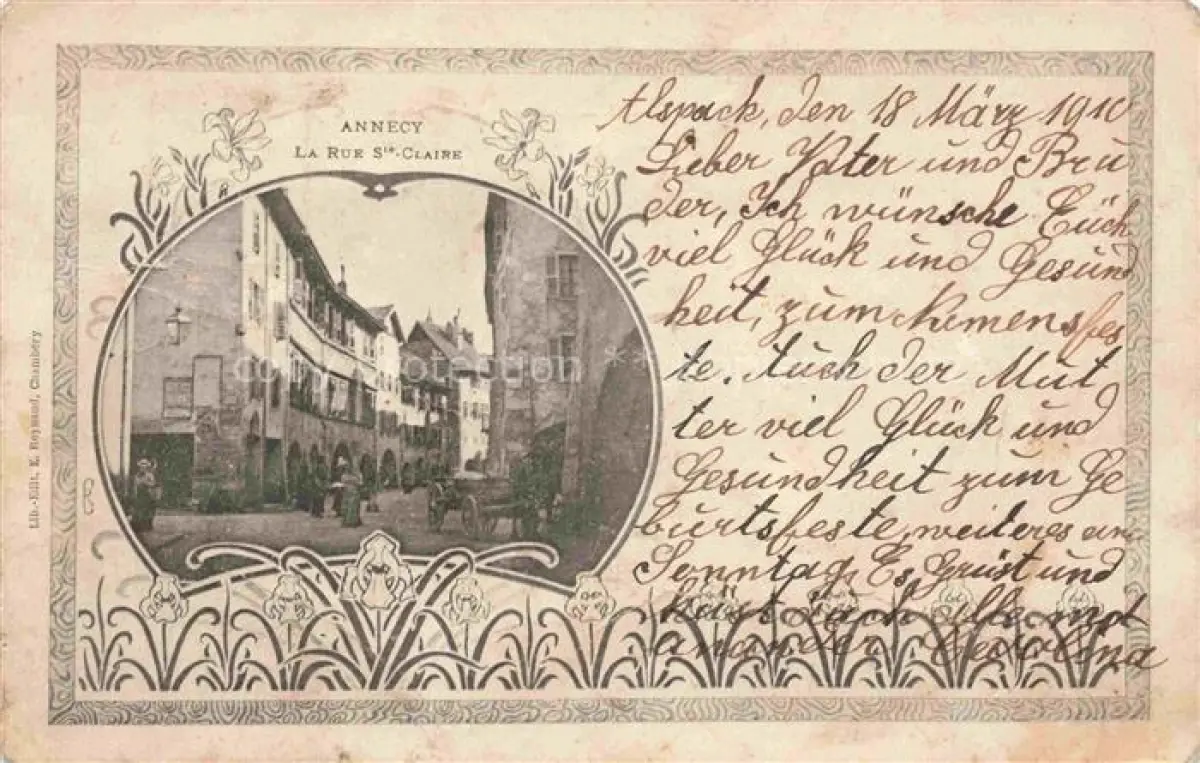 ANNECY
LA RUE Ste-CLAIRE
Lib.-Edit. E. Reynaud, Chambéry
den 18 März 1910
Lieber Vater und Bru
der, Ich wünsche Eüch
viel Glück und Gesünd
heit, zum Namensfes
te. Auch der Mut
ter viel Glück und
Gesundheit zum Ge
burtsfeste, weiteres am
Sonntag, Es Grüst und
küst Eüch alle mit
anander